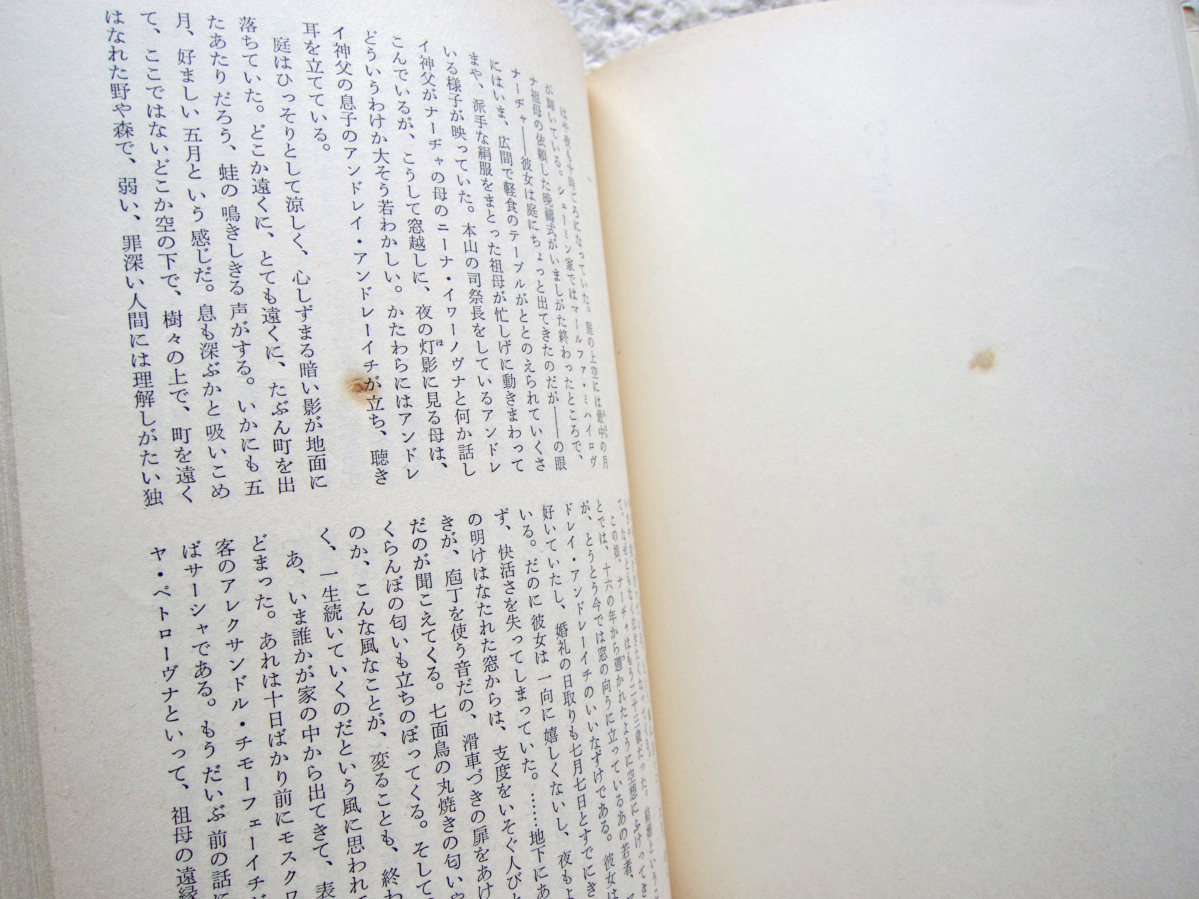 一
はや夜も十時ごろになっていた。庭の上空には最中の月
が輝いている。シューミン家ではマールファ・ミハイロヴ
ナ祖母の依頼した晩禱式がいましがた終わったところで、
ナーヂャ――彼女は庭にちょっと出てきたのだが――の眼
にはいま、広間で軽食のテーブルがととのえられていくさ
まや、派手な絹服をまとった祖母が忙しげに動きまわって
いる様子が映っていた。本山の司祭長をしているアンドレ
イ神父がナーヂャの母のニーナ・イワーノヴナと何か話し
こんでいるが、こうして窓越しに、夜の灯影に見る母は、
どういうわけか大そう若わかしい。かたわらにはアンドレ
イ神父の息子のアンドレイ・アンドレーイチが立ち、聴き
耳を立てている。
庭はひっそりとして涼しく、心しずまる暗い影が地面に
落ちていた。どこか遠くに、とても遠くに、たぶん町を出
たあたりだろう、蛙の鳴きしきる声がする。いかにも五
月、好ましい五月という感じだ。息も深ぶかと吸いこめ
て、ここではないどこか空の下で、樹々の上で、町を遠く
はなれた野や森で、弱い、罪深い人間には理解しがたい独
て、なぜともなく泣きたくなってくる。
この娘、ナーヂャはもう二十三歳だった。結婚というこ
とでは、十六の年から憑かれたように空想にふけってき
が、とうとう今では窓の向うに立っているあの若者、ア
ドレイ・アンドレーイチのいいなずけである。彼女は
好いていたし、婚礼の日取りも七月七日とすでにき
いる。だのに彼女は一向に嬉しくないし、夜もよ
ず、快活さを失ってしまっていた。……地下にあ
の明けはなたれた窓からは、支度をいそぐ人びと
きが、庖丁を使う音だの、滑車づきの扉をあけ
だのが聞こえてくる。七面鳥の丸焼きの匂いや
くらんぼの匂いも立ちのぼってくる。そして
のか、こんな風なことが、変ることも、終わ
く、一生続いていくのだという風に思われて
あ、いま誰かが家の中から出てきて、表
どまった。あれは十日ばかり前にモスクワ
客のアレクサンドル・チモーフェーイチ
ばサーシャである。もうだいぶ前の話に
ヤ・ペトローヴナといって、祖母の遠縁